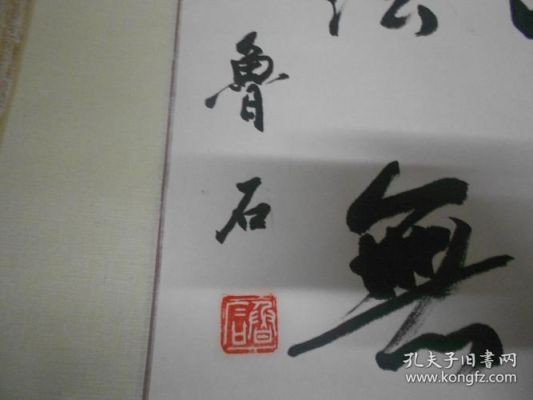 法
無
魯石
魯石
孔夫子旧書网
www.kongfz.com